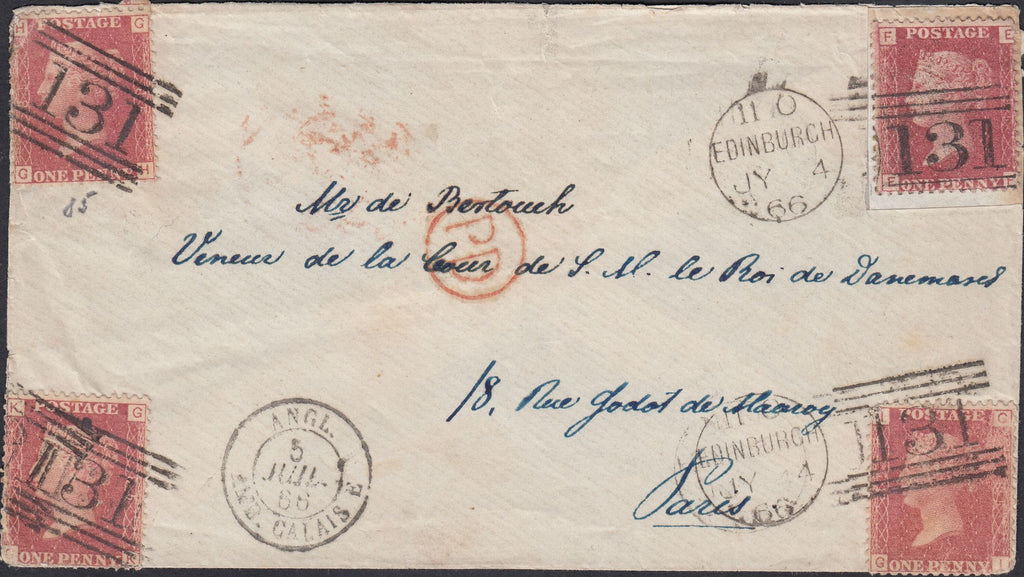 H POSTAGE G
131
G ONE PENNY H
F POSTAGE E
131
E ONE PENNY
11 O
EDINBURGH
JY 4
66
85
Mr de Bertouch
PD
Veneur de la Cour de S. M. le Roi de Danemarck
18, Rue Godot de Mauroy
Paris
K POSTAGE G
131
ONE PENNY K
ANGL.
5
JUIL.
66
AMB. CALAIS E
EDINBURGH
JY 4
66
131
G ONE PENNY I